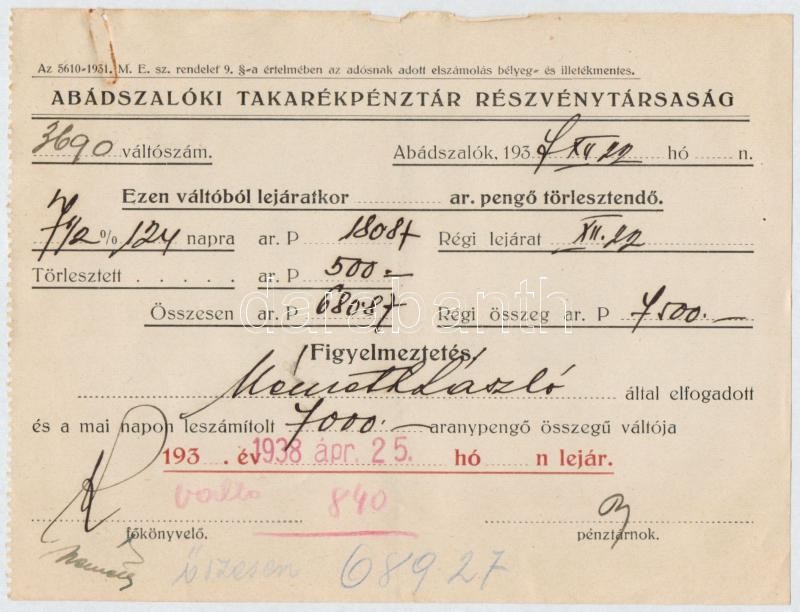 Az 5610-1931. M. E. sz. rendelet 9. §-a értelmében az adósnak adott elszámolás bélyeg- és illetékmentes.
ABÁDSZALÓKI TAKARÉKPÉNZTÁR RÉSZVÉNYTÁRSASÁG
3690 váltószám. Abádszalók, 1937 XII 22 hó n.
Ezen váltóból lejáratkor ar. pengő törlesztendő.
7 1/2 % 124 napra ar. P 180 87 Régi lejárat XII. 22
Törlesztett . . . . . ar. P 500 -
Összesen ar. P 680 87 Régi összeg ar. P 7500.-
Figyelmeztetés.
Németh László által elfogadott
és a mai napon leszámítolt 7000.- aranypengő összegű váltója
193 . év 1938 ápr. 25. hó n lejár.
váltó 840
főkönyvelő. pénztárnok.
összesen 689 27
darabanth